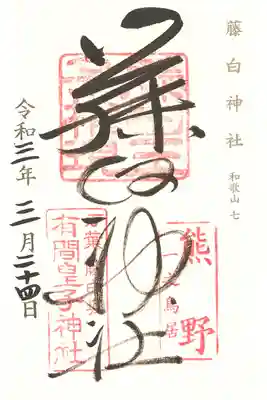 藤白神社
和歌山 七
藤白神社
熊野
鳥居
有間皇子神社
令和三年 三月二十四日